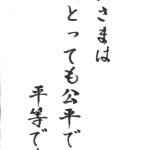 さまは
とっても公平で
平等で